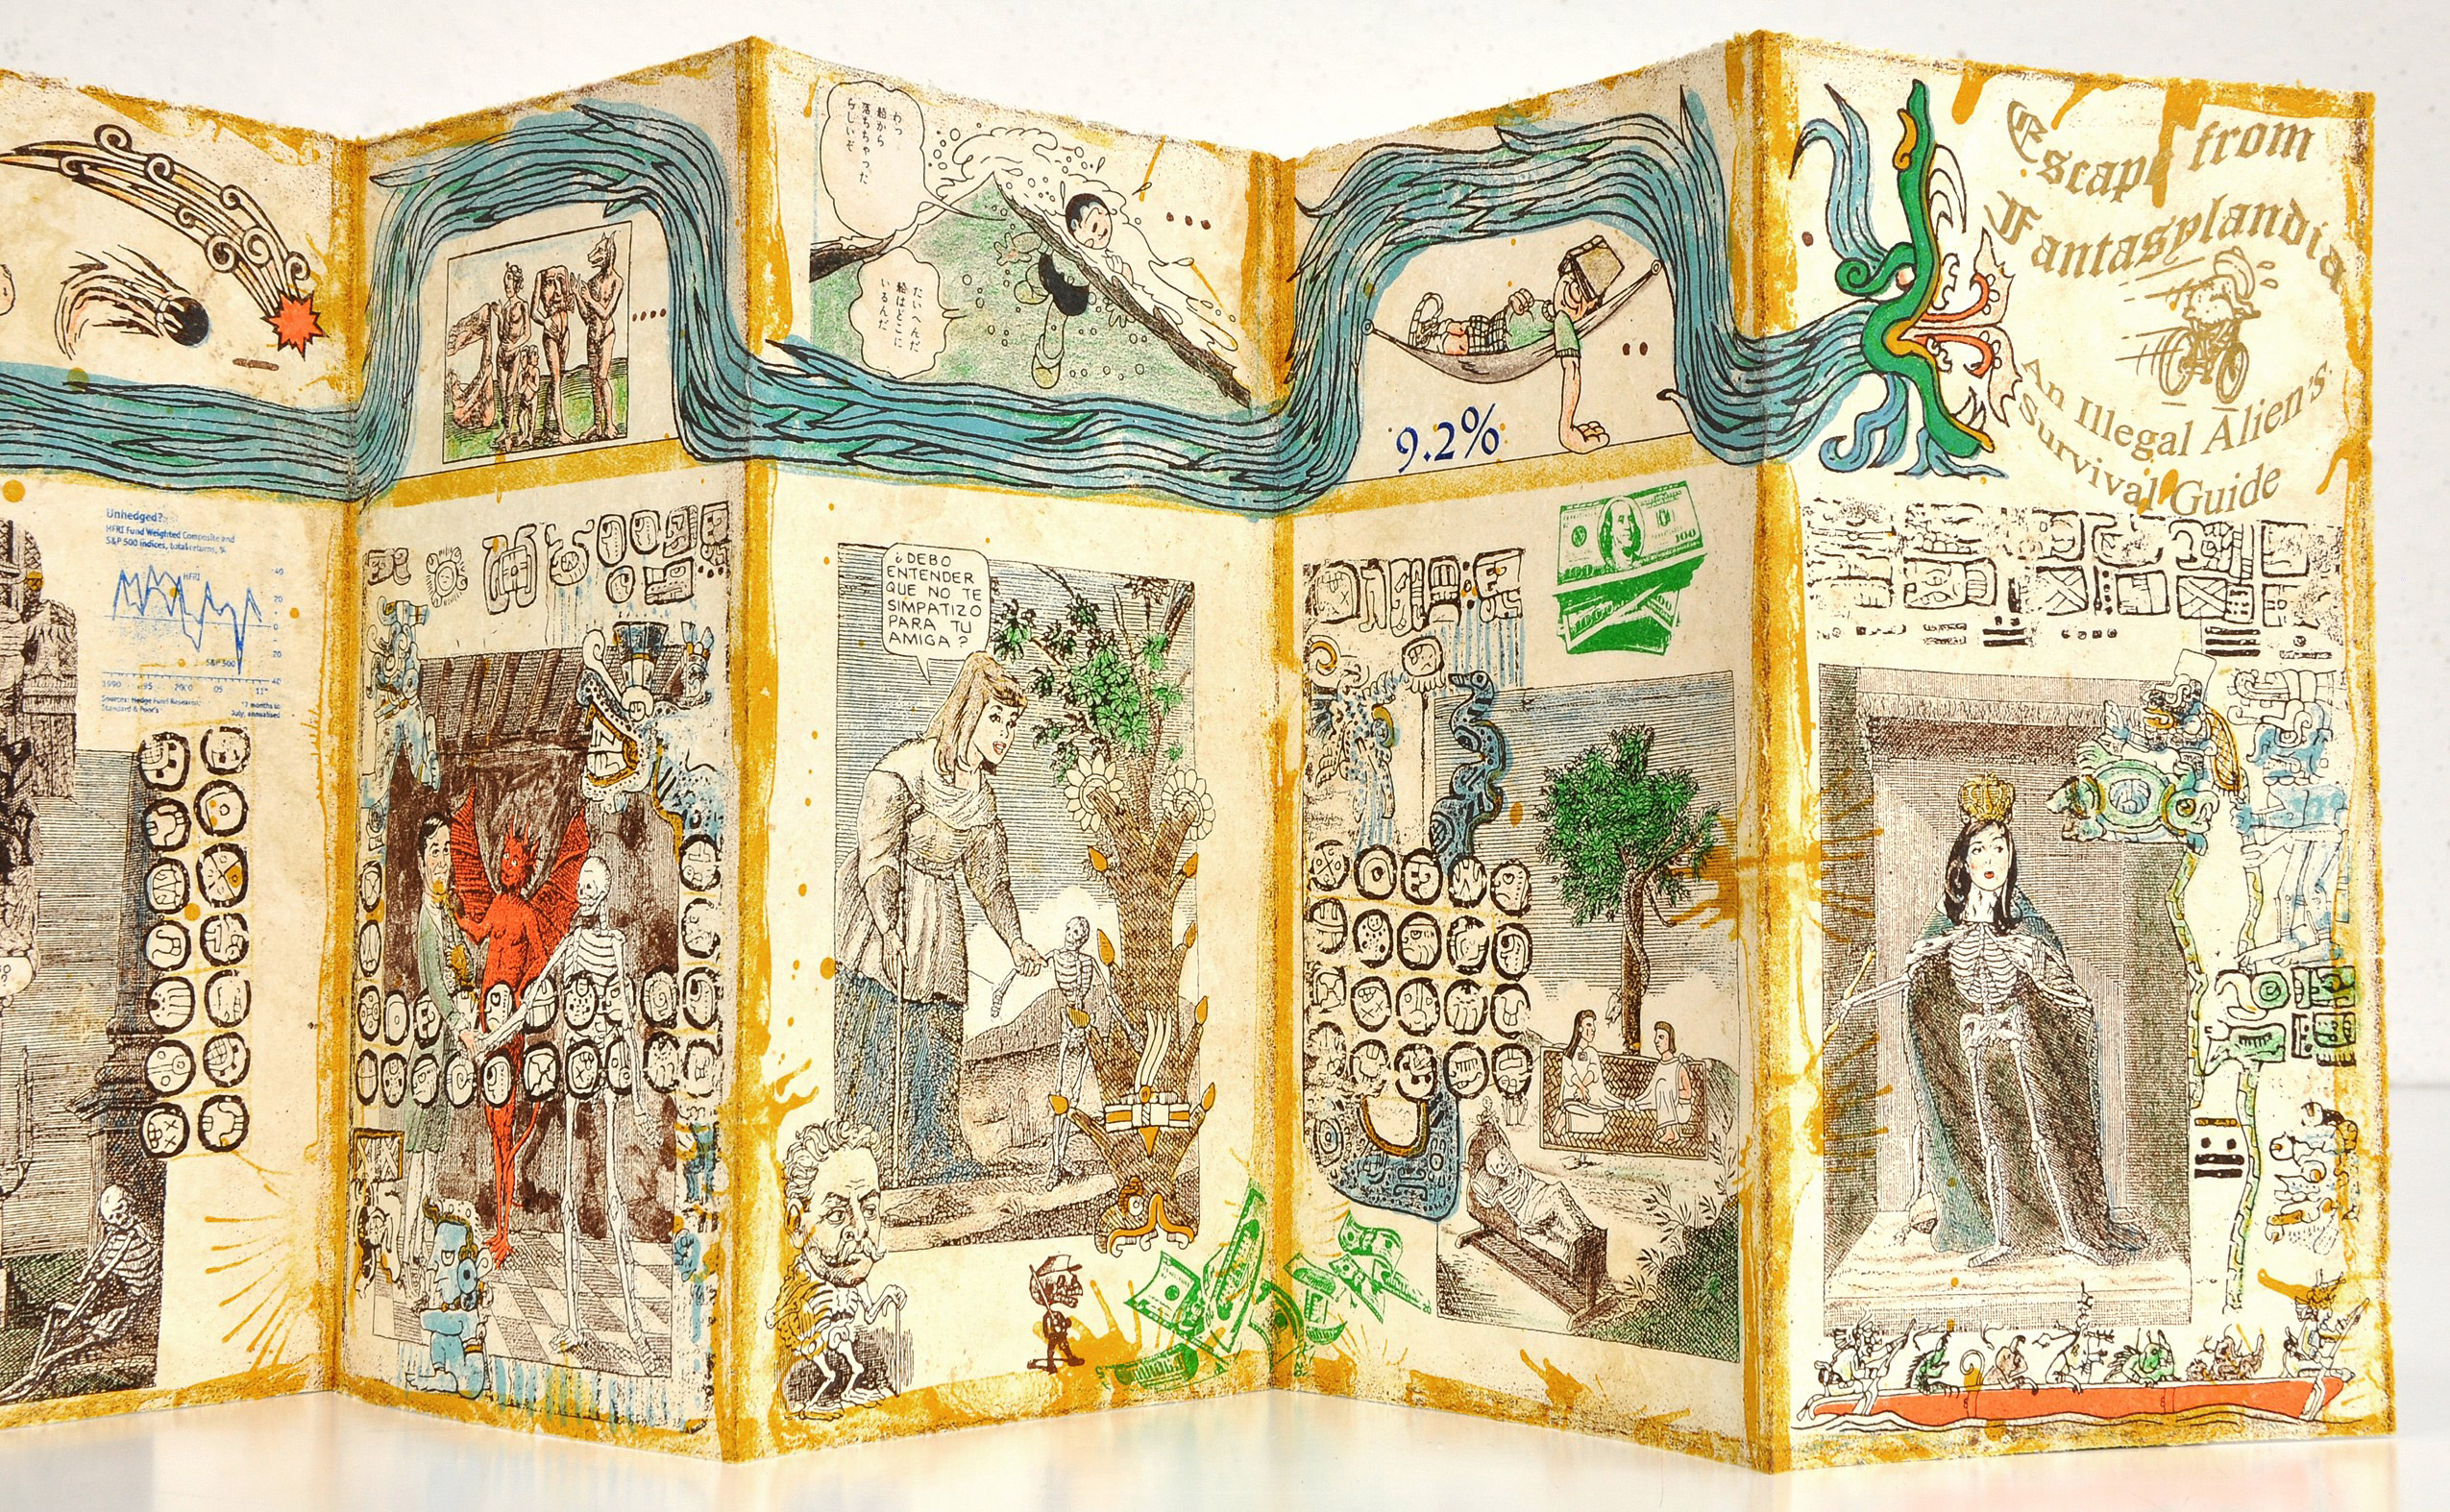 Unhedged?
HFRI Fund Weighted Composite and
S&P 500 indices, total returns, %
HFRI
40
20
0
20
40
S&P 500
1990 95 2000 05 11*
Sources: Hedge Fund Research;
Standard & Poor's
*7 months to
July, annualised
わっ
絵から
落ちちゃった
らしいぞ
たいへんだ
絵はどこに
いるんだ
¿DEBO
ENTENDER
QUE NO TE
SIMPATIZO
PARA TU
AMIGA?
9.2%
100
Escape from
Fantasylandia
An Illegal Alien's
Survival Guide